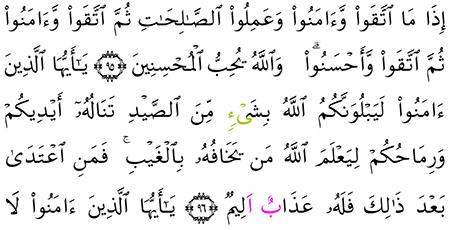 إِذَا مَا ٱتَّقَوا۟ وَّءَامَنُوا۟ وَعَمِلُوا۟ ٱلصَّـٰلِحَـٰتِ ثُمَّ ٱتَّقَوا۟ وَّءَامَنُوا۟
ثُمَّ ٱتَّقَوا۟ وَّأَحْسَنُوا۟ ۗ وَٱللَّهُ يُحِبُّ ٱلْمُحْسِنِينَ ﴿٩٥﴾ يَـٰٓأَيُّهَا ٱلَّذِينَ
ءَامَنُوا۟ لَيَبْلُوَنَّكُمُ ٱللَّهُ بِشَىْءٍ مِّنَ ٱلصَّيْدِ تَنَالُهُۥٓ أَيْدِيكُمْ
وَرِمَاحُكُمْ لِيَعْلَمَ ٱللَّهُ مَن يَخَافُهُۥ بِٱلْغَيْبِ ۚ فَمَنِ ٱعْتَدَىٰ
بَعْدَ ذَٰلِكَ فَلَهُۥ عَذَابٌ أَلِيمٌ ﴿٩٦﴾ يَـٰٓأَيُّهَا ٱلَّذِينَ ءَامَنُوا۟ لَا